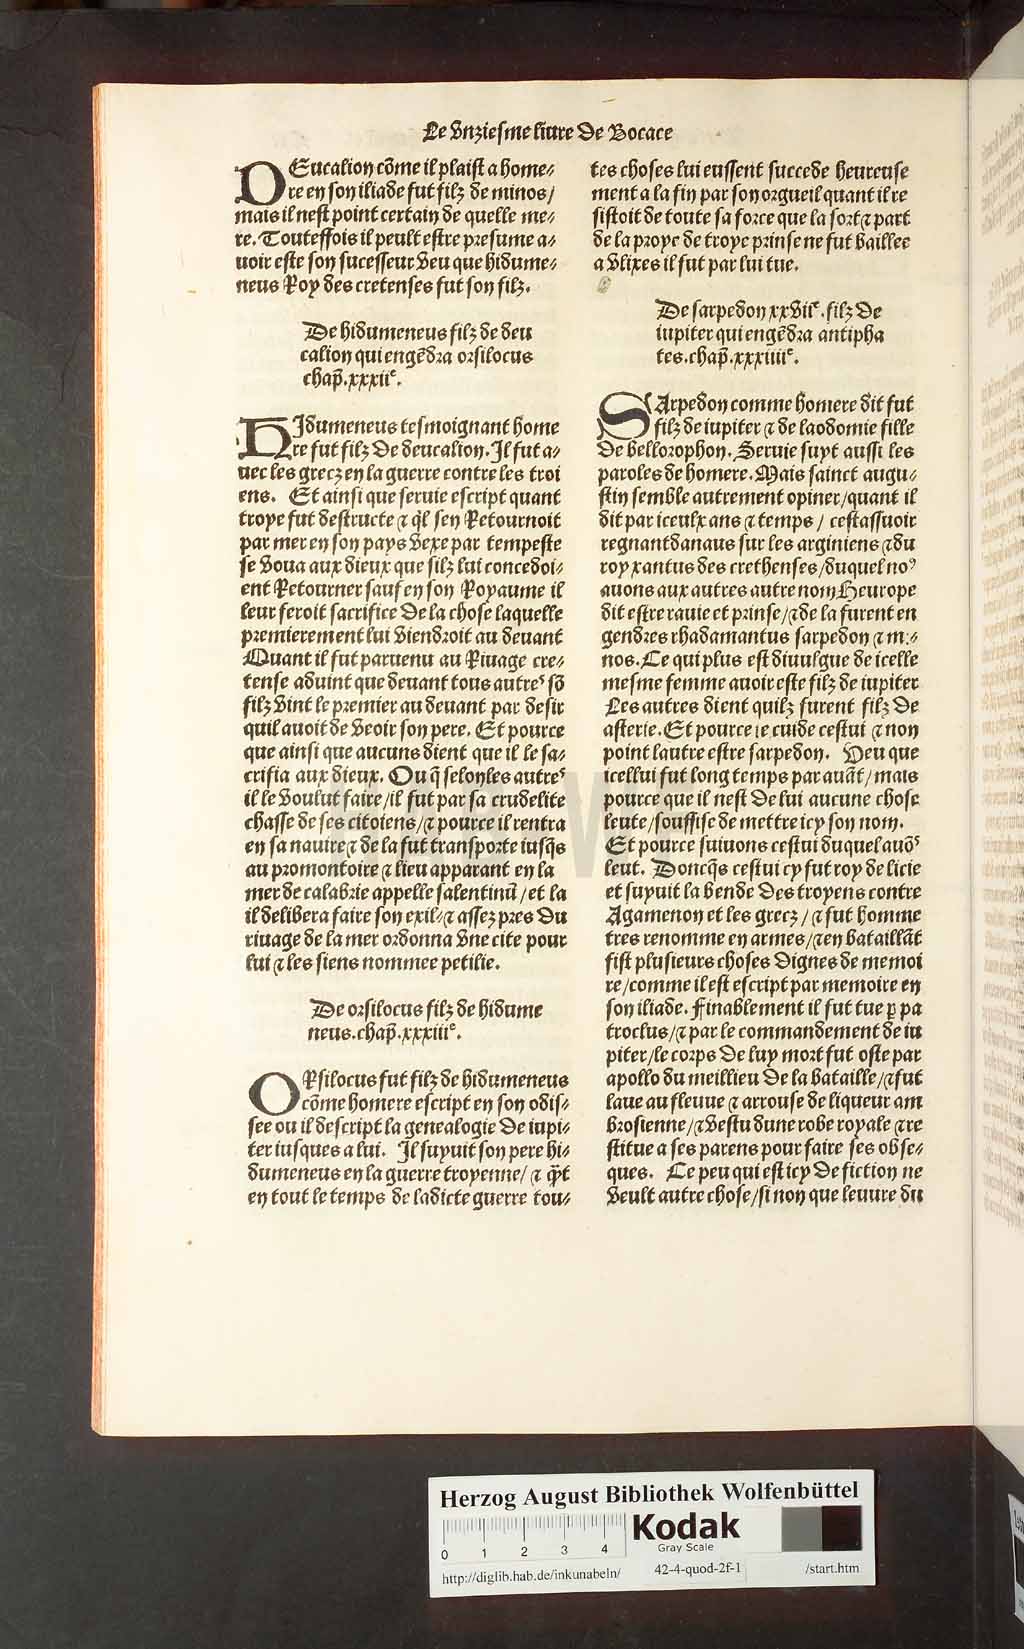 Le vnziesme liure de Bocace
DEucalion cõme il plaist a home-
re en son iliade fut filz de minos/
mais il nest point certain de quelle me-
re. Touteffois il peult estre presume a-
uoir este son sucesseur veu que hidume-
neus Roy des cretenses fut son filz.
De hidumeneus filz de deu
calion qui engẽdra orsilocus
chap̃.xxxiiᵉ.
HIdumeneus tesmoignant home
re fut filz de deucalion. Il fut a-
uec les grecz en la guerre contre les troi
ens. Et ainsi que seruie escript quant
troye fut destructe ⁊ q̃l sen Retournoit
par mer en son pays vexe par tempeste
se voua aux dieux que silz lui concedoi-
ent Retourner sauf en son Royaume il
leur feroit sacrifice de la chose laquelle
premierement lui viendroit au deuant
Quant il fut paruenu au Riuage cre-
tense aduint que deuant tous autreˢ sõ
filz vint le premier au deuant par desir
quil auoit de veoir son pere. Et pource
que ainsi que aucuns dient que il le sa-
crifia aux dieux. Ou q̃ selon les autreˢ
il le voulut faire/il fut par sa crudelite
chasse de ses citoiens/⁊ pource il rentra
en sa nauire ⁊ de la fut transporte iusq̃s
au promontoire ⁊ lieu apparant en la
mer de calabrie appelle salentinũ/et la
il delibera faire son exil/⁊ assez pres du
riuage de la mer ordonna vne cite pour
lui ⁊ les siens nommee petilie.
De orsilocus filz de hidume
neus.chap̃.xxxiiiᵉ.
ORsilocus fut filz de hidumeneus
cõme homere escript en son odis-
see ou il descript la genealogie de iupi-
ter iusques a lui. Il suyuit son pere hi-
dumeneus en la guerre troyenne/ ⁊ q̃t
en tout le temps de ladicte guerre tou-
tes choses lui eussent succede heureuse
ment a la fin par son orgueil quant il re
sistoit de toute sa force que la sort ⁊ part
de la proye de troye prinse ne fut baillee
a vlixes il fut par lui tue.
De sarpedon xxviiᵉ.filz de
iupiter qui engẽdra antipha
tes.chap̃.xxxiiiiᵉ.
SArpedon comme homere dit fut
filz de iupiter ⁊ de laodomie fille
de bellorophon. Seruie suyt aussi les
paroles de homere. Mais sainct augu-
stin semble autrement opiner/quant il
dit par iceulx ans ⁊ temps/ cestassuoir
regnant danaus sur les arginiens ⁊ du
roy xantus des crethenses/duquel noꝰ
auons aux autres autre nom heurope
dit estre rauie et prinse/⁊ de la furent en
gendres rhadamantus sarpedon ⁊ mi-
nos. Ce qui plus est diuulgue de icelle
mesme femme auoir este filz de iupiter
Les autres dient quilz furent filz de
asterie. Et pource ie cuide cestui ⁊ non
point lautre estre sarpedon. Veu que
icellui fut long temps par auãt/mais
pource que il nest de lui aucune chose
leute/souffise de mettre icy son nom.
Et pource suiuons cestui duquel auõˢ
leut. Doncq̃s cestui cy fut roy de licie
et suyuit la bende des troyens contre
Agamenon et les grecz/⁊ fut homme
tres renomme en armes/⁊ en bataillãt
fist plusieurs choses dignes de memoi
re/comme il est escript par memoire en
son iliade. Finablement il fut tue ꝑ pa
troclus/⁊ par le commandement de iu
piter/le corps de luy mort fut oste par
apollo du meillieu de la bataille/⁊ fut
laue au fleuue ⁊ arrouse de liqueur am
brosienne/⁊ vestu dune robe royale ⁊ re
stitue a ses parens pour faire ses obse-
ques. Ce peu qui est icy de fiction ne
veult autre chose/si non que leuure du
HAB WF
Herzog August Bibliothek Wolfenbüttel
0 1 2 3 4
Kodak
Gray Scale
http://diglib.hab.de/inkunabeln/ 42-4-quod-2f-1 /start.htm